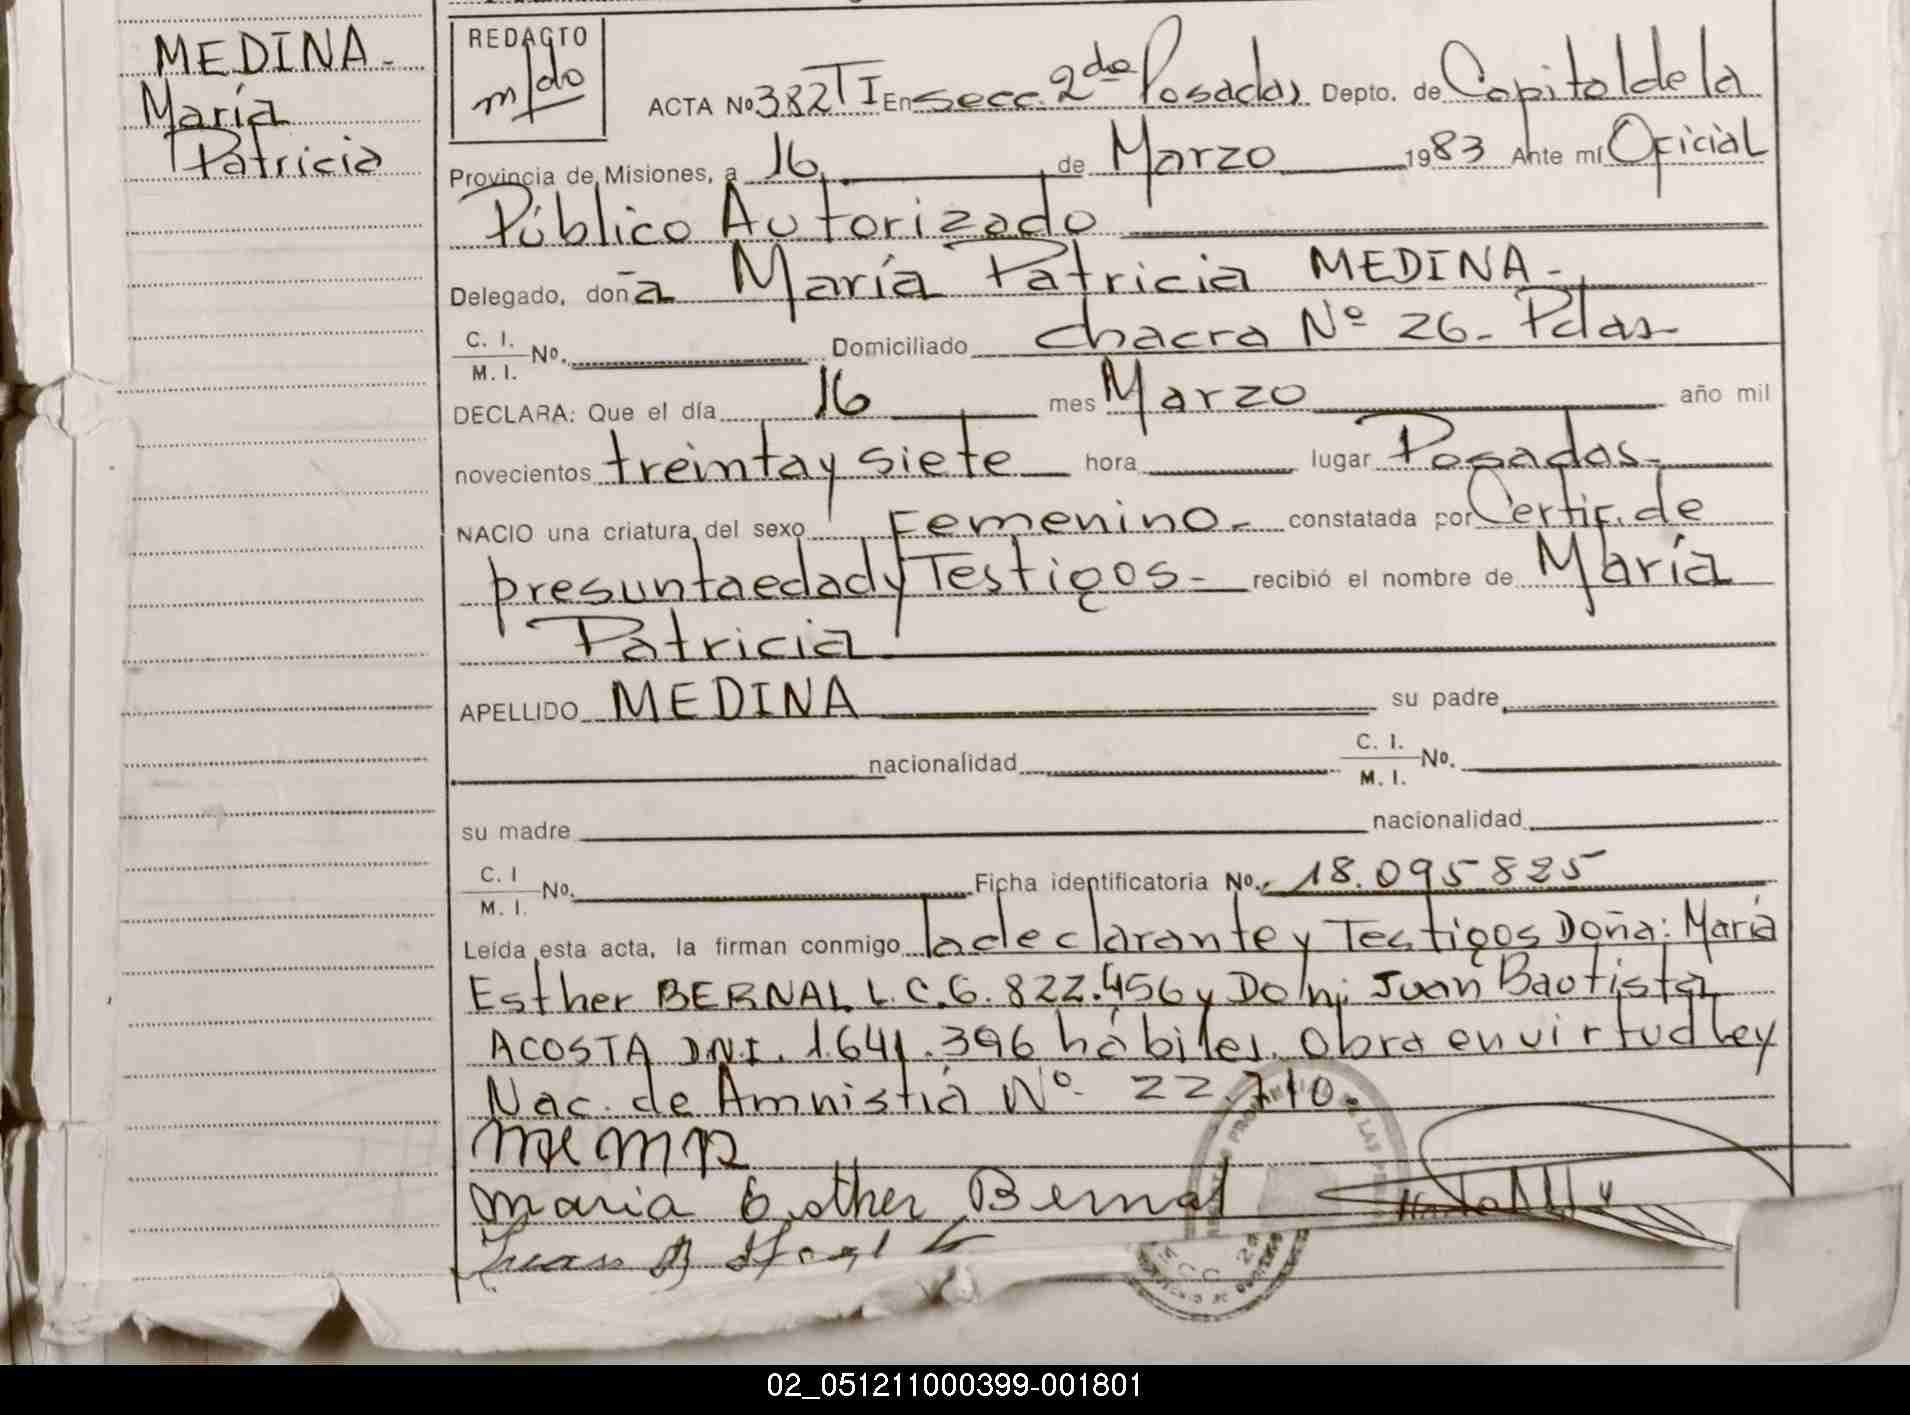 MEDINA-
María
Patricia
REDACTO
m/do
ACTA Nº 382 TI En Secc. 2da Posadas Depto. de Capital de la
Provincia de Misiones, a 16 de Marzo 1983 Ante mí Oficial
Público Autorizado
Delegado, doña María Patricia MEDINA-
C. I.
M. I. Nº. Domiciliado chacra Nº 26- Pdas-
DECLARA: Que el día 16 mes Marzo año mil
novecientos treinta y siete hora lugar Posadas-
NACIO una criatura del sexo Femenino- constatada por Certif. de
presunta edad y Testigos- recibió el nombre de María
Patricia
APELLIDO MEDINA su padre
nacionalidad C. I.
M. I. Nº.
su madre nacionalidad
C. I
M. I. Nº. Ficha identificatoria Nº. 18.095825
Leída esta acta, la firman conmigo la declarante y Testigos Doña: María
Esther BERNAL L.C.6.822.456 y Don: Juan Bautista
ACOSTA DNI. 1.641.396 hábiles. Obra en virtud Ley
Nac. de Amnistía Nº 22.710.
Maria Esther Bernal
Juan B
02_051211000399-001801